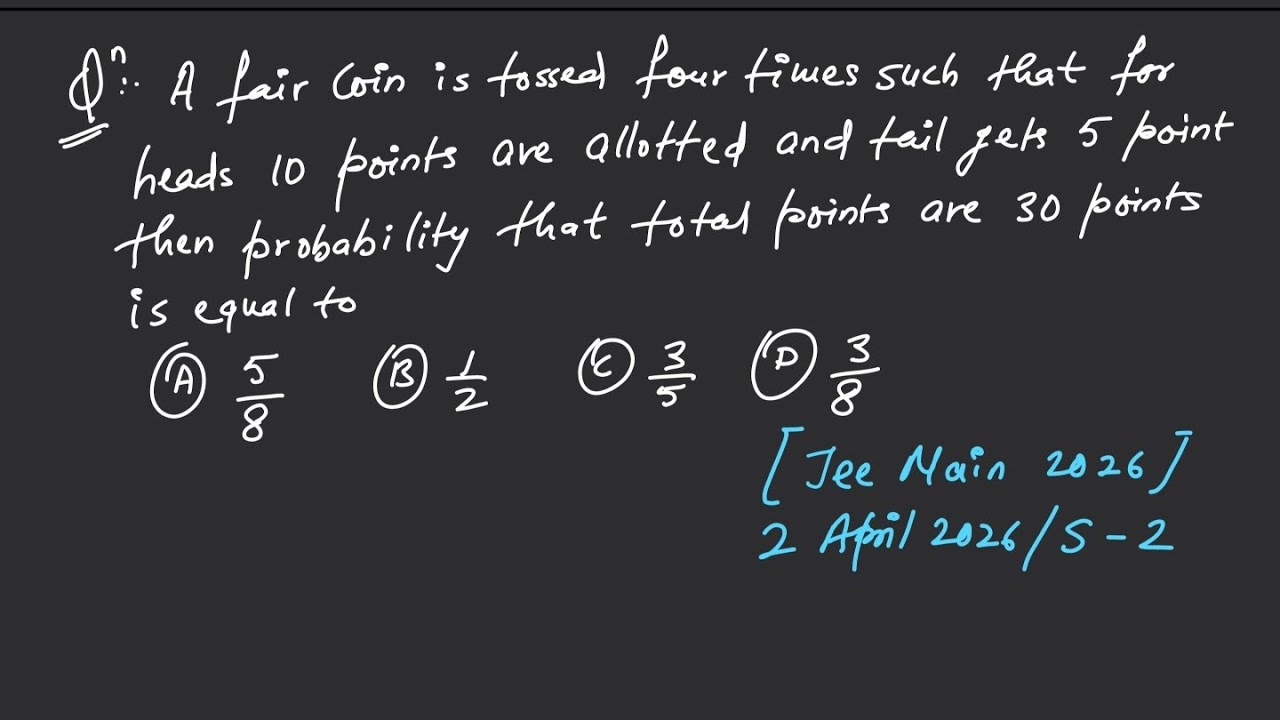 Qⁿ:- A fair coin is tossed four times such that for
heads 10 points are allotted and tail gets 5 point
then probability that total points are 30 points
is equal to
(A) 5/8 (B) 1/2 (C) 3/5 (D) 3/8
[Jee Main 2026]
2 April 2026/S-2